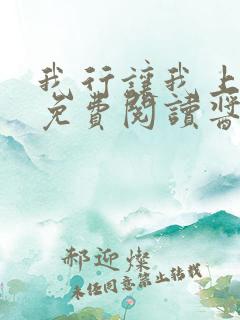 我行讓我上
免費閱讀醬
郝迎燦
未经同意禁止转载